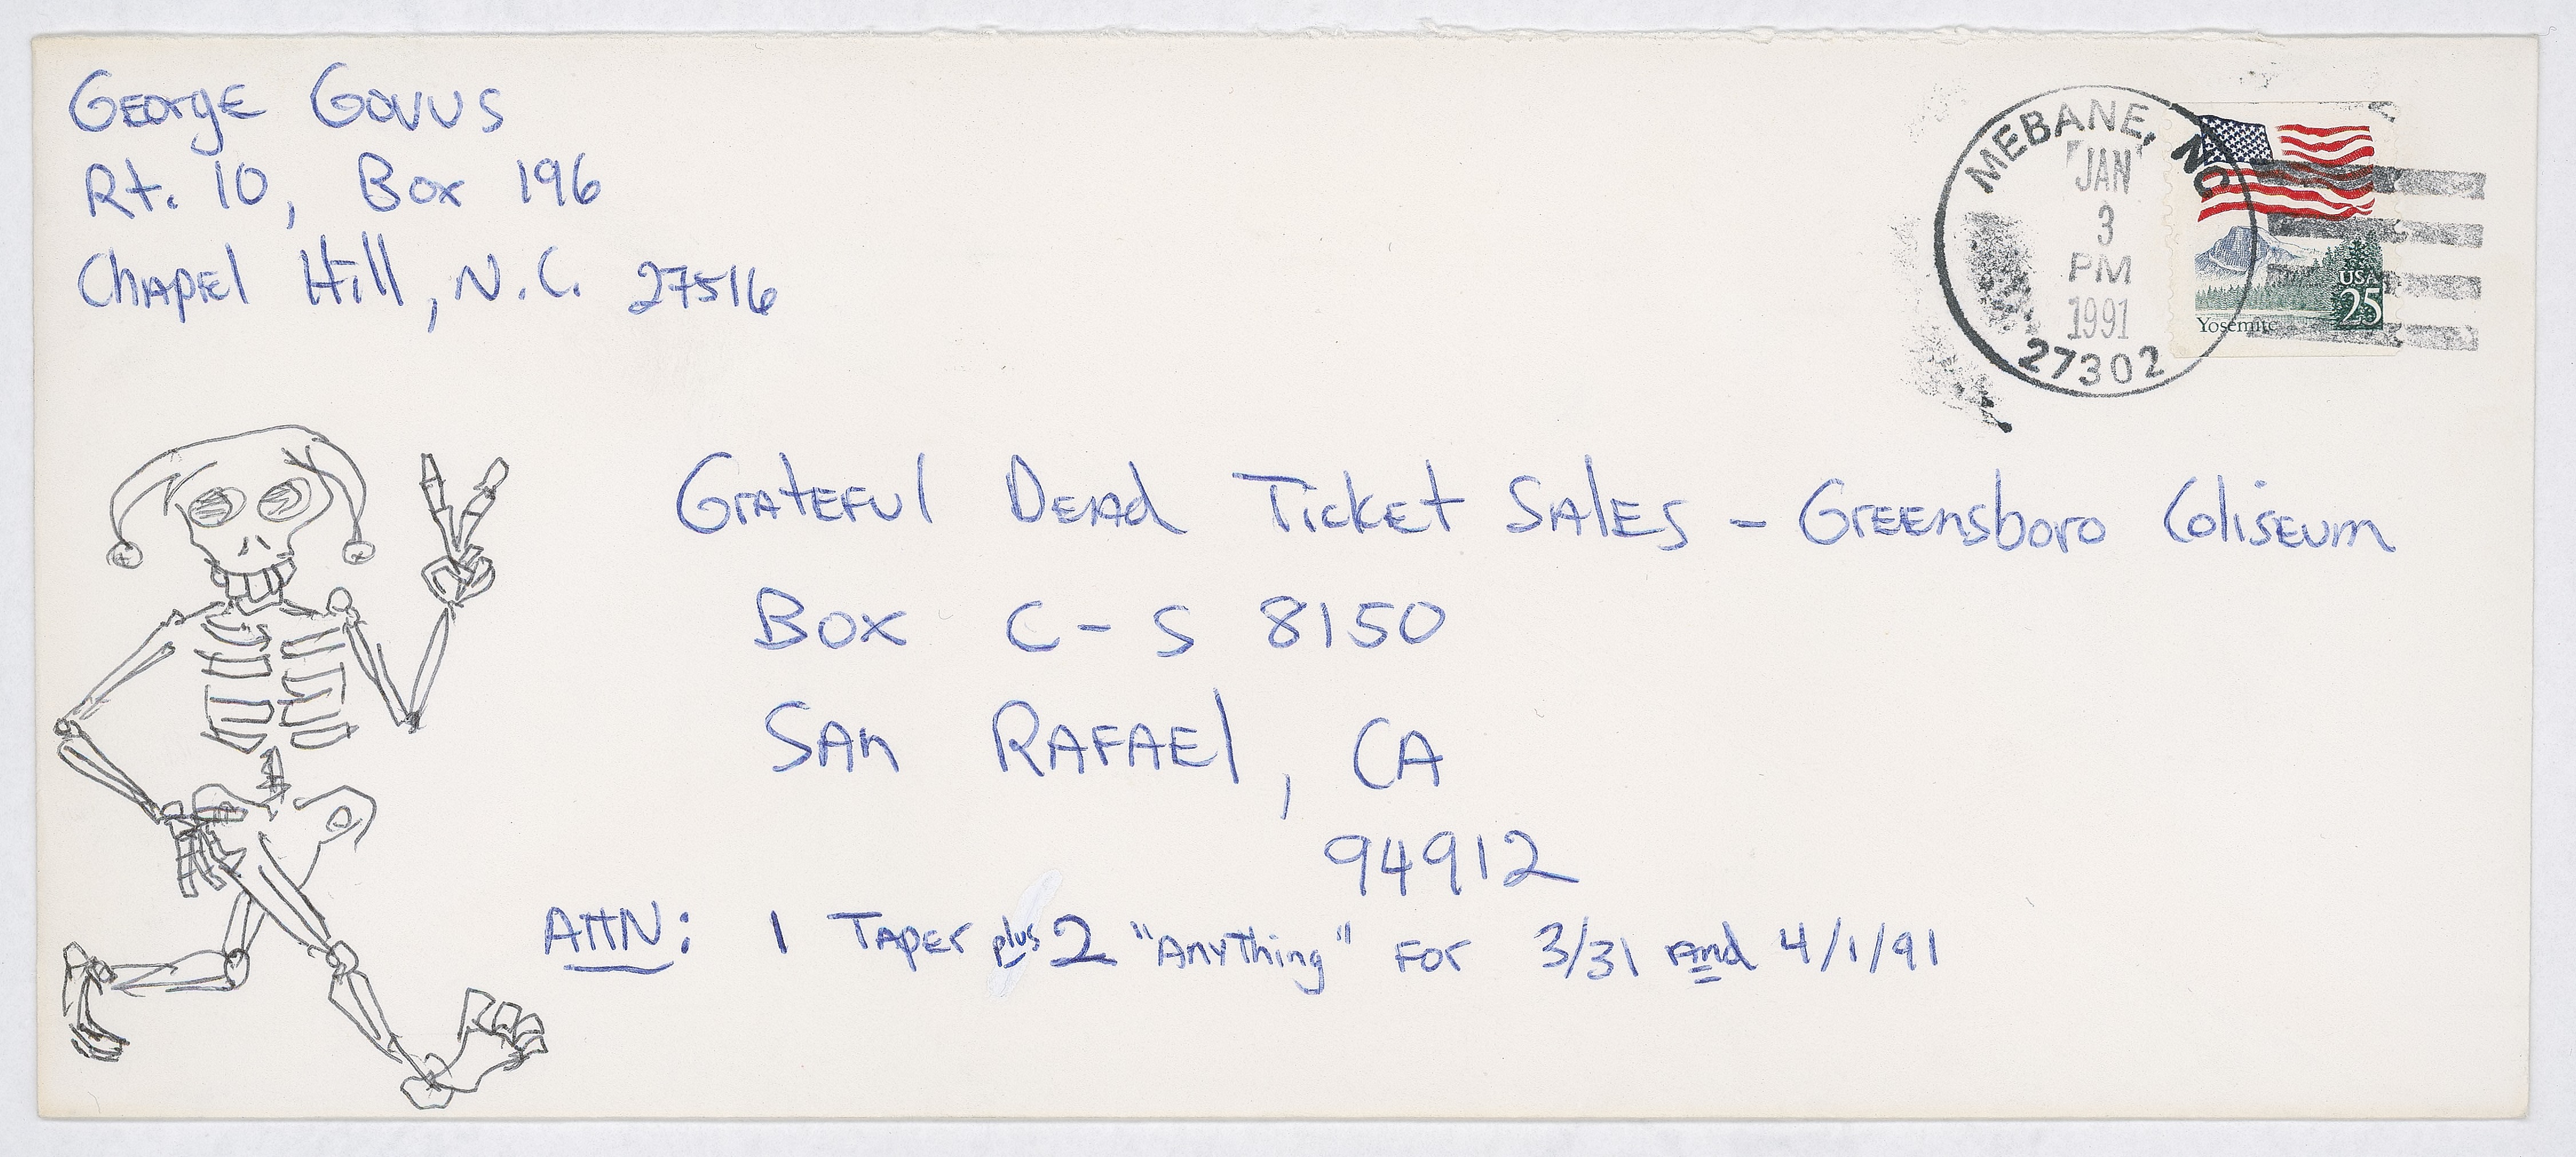 George Govus
Rt. 10, Box 196
Chapel Hill, N.C. 27516
MEBANE, NC
JAN
3
PM
1991
27302
USA
25
Yosemite
Grateful Dead Ticket Sales - Greensboro Coliseum
Box C-S 8150
San Rafael, CA
94912
Attn: 1 Taper plus 2 "Anything" for 3/31 and 4/1/91